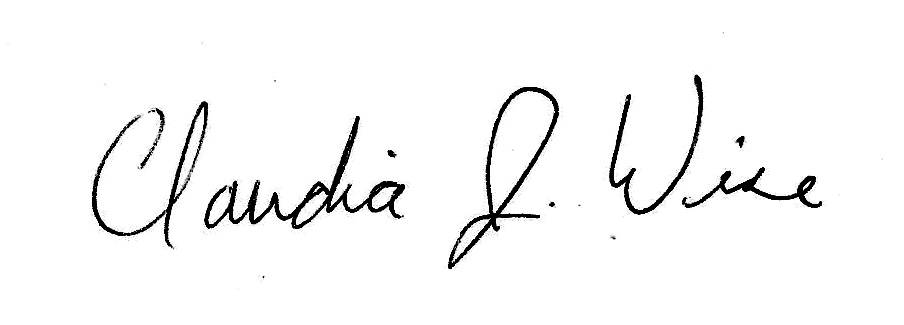 Claudia J. Wise